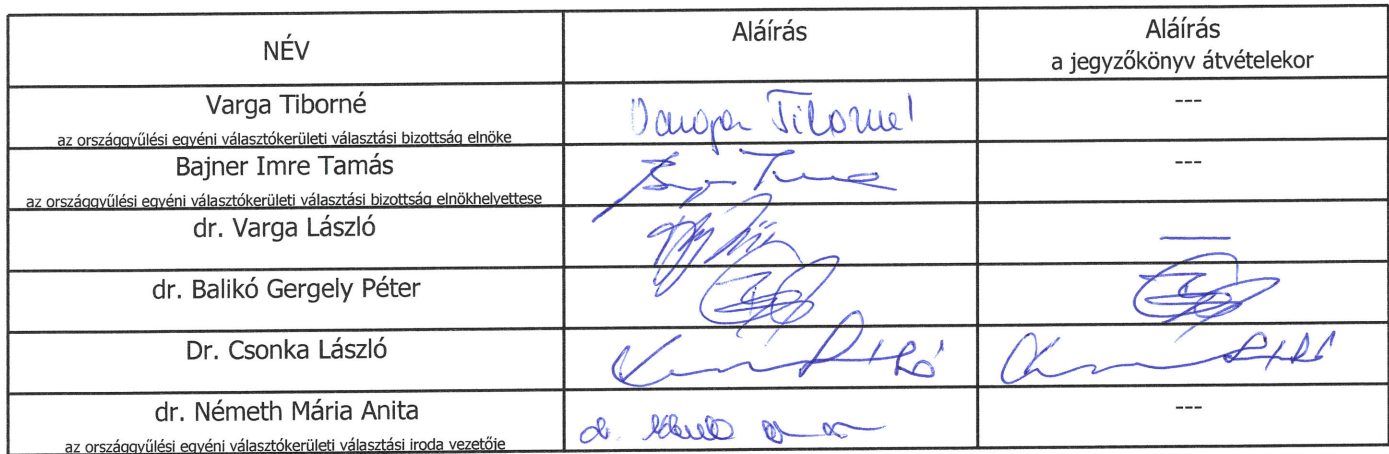 NÉV
Aláírás
Aláírás
a jegyzőkönyv átvételekor
Varga Tiborné
az országgyűlési egyéni választókerületi választási bizottság elnöke
Varga Tiborné
---
Bajner Imre Tamás
az országgyűlési egyéni választókerületi választási bizottság elnökhelyettese
---
dr. Varga László
—
dr. Balikó Gergely Péter
Dr. Csonka László
dr. Németh Mária Anita
az országgyűlési egyéni választókerületi választási iroda vezetője
dr.
---